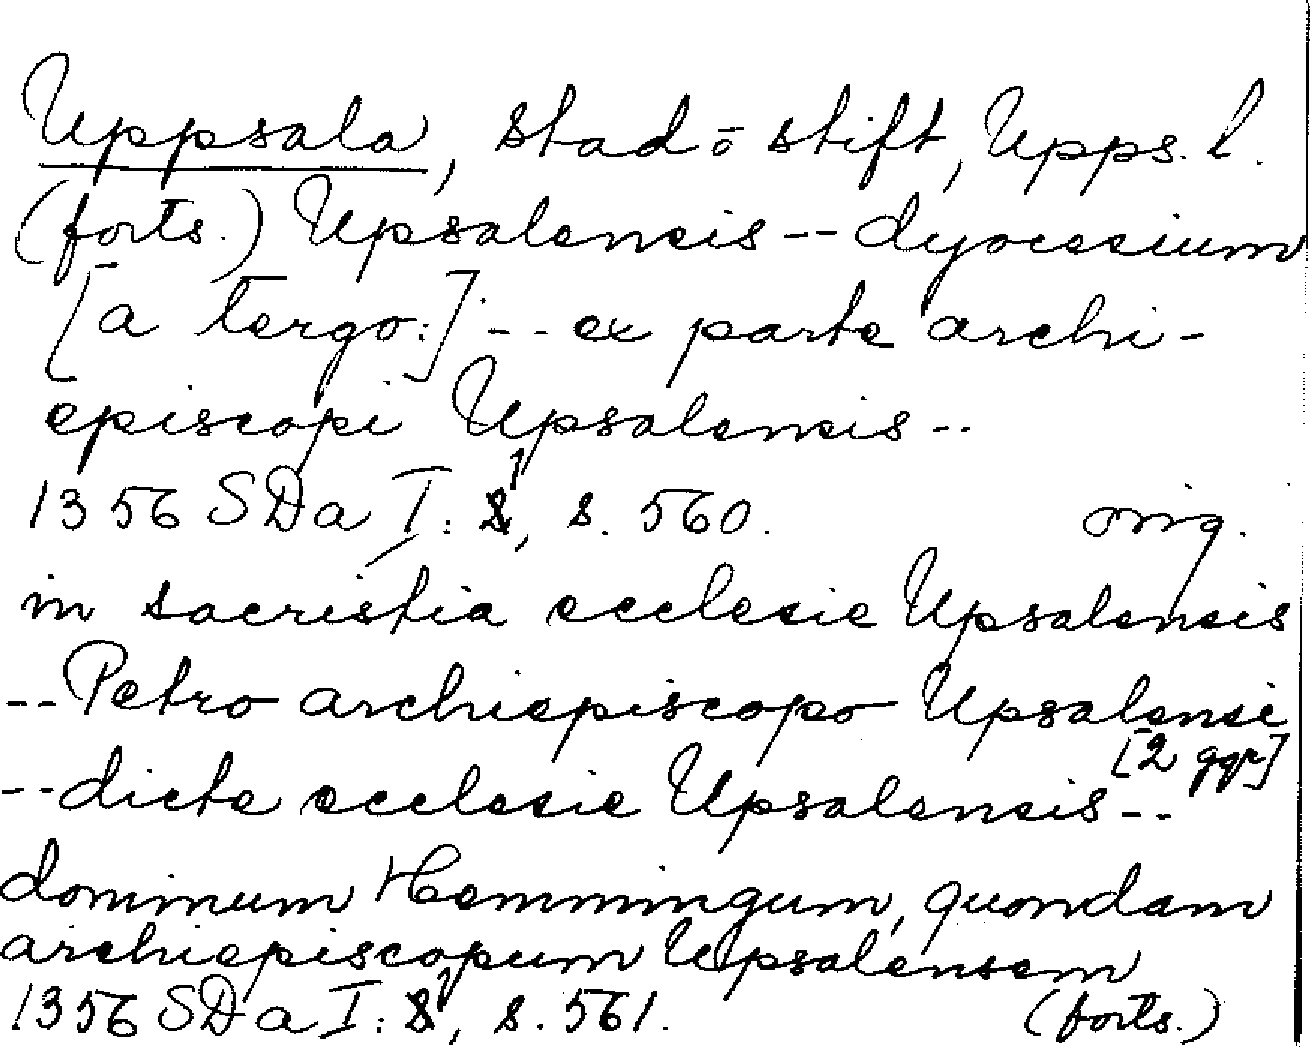 Uppsala, stad o stift, Upps. l.
(forts.) Upsalensis -- dyocesium
[a tergo:] -- ex parte archi-
episcopi Upsalensis --
1356 SDa I: 1, s. 560. orig.
in sacristia ecclesie Upsalensis
-- Petro archiepiscopo Upsalensi
[2 ggr]
-- dicte ecclesie Upsalensis --
dominum Hemmingum, quondam
archiepiscopum Upsalensem
1356 SDa I: 1, s. 561. (forts.)